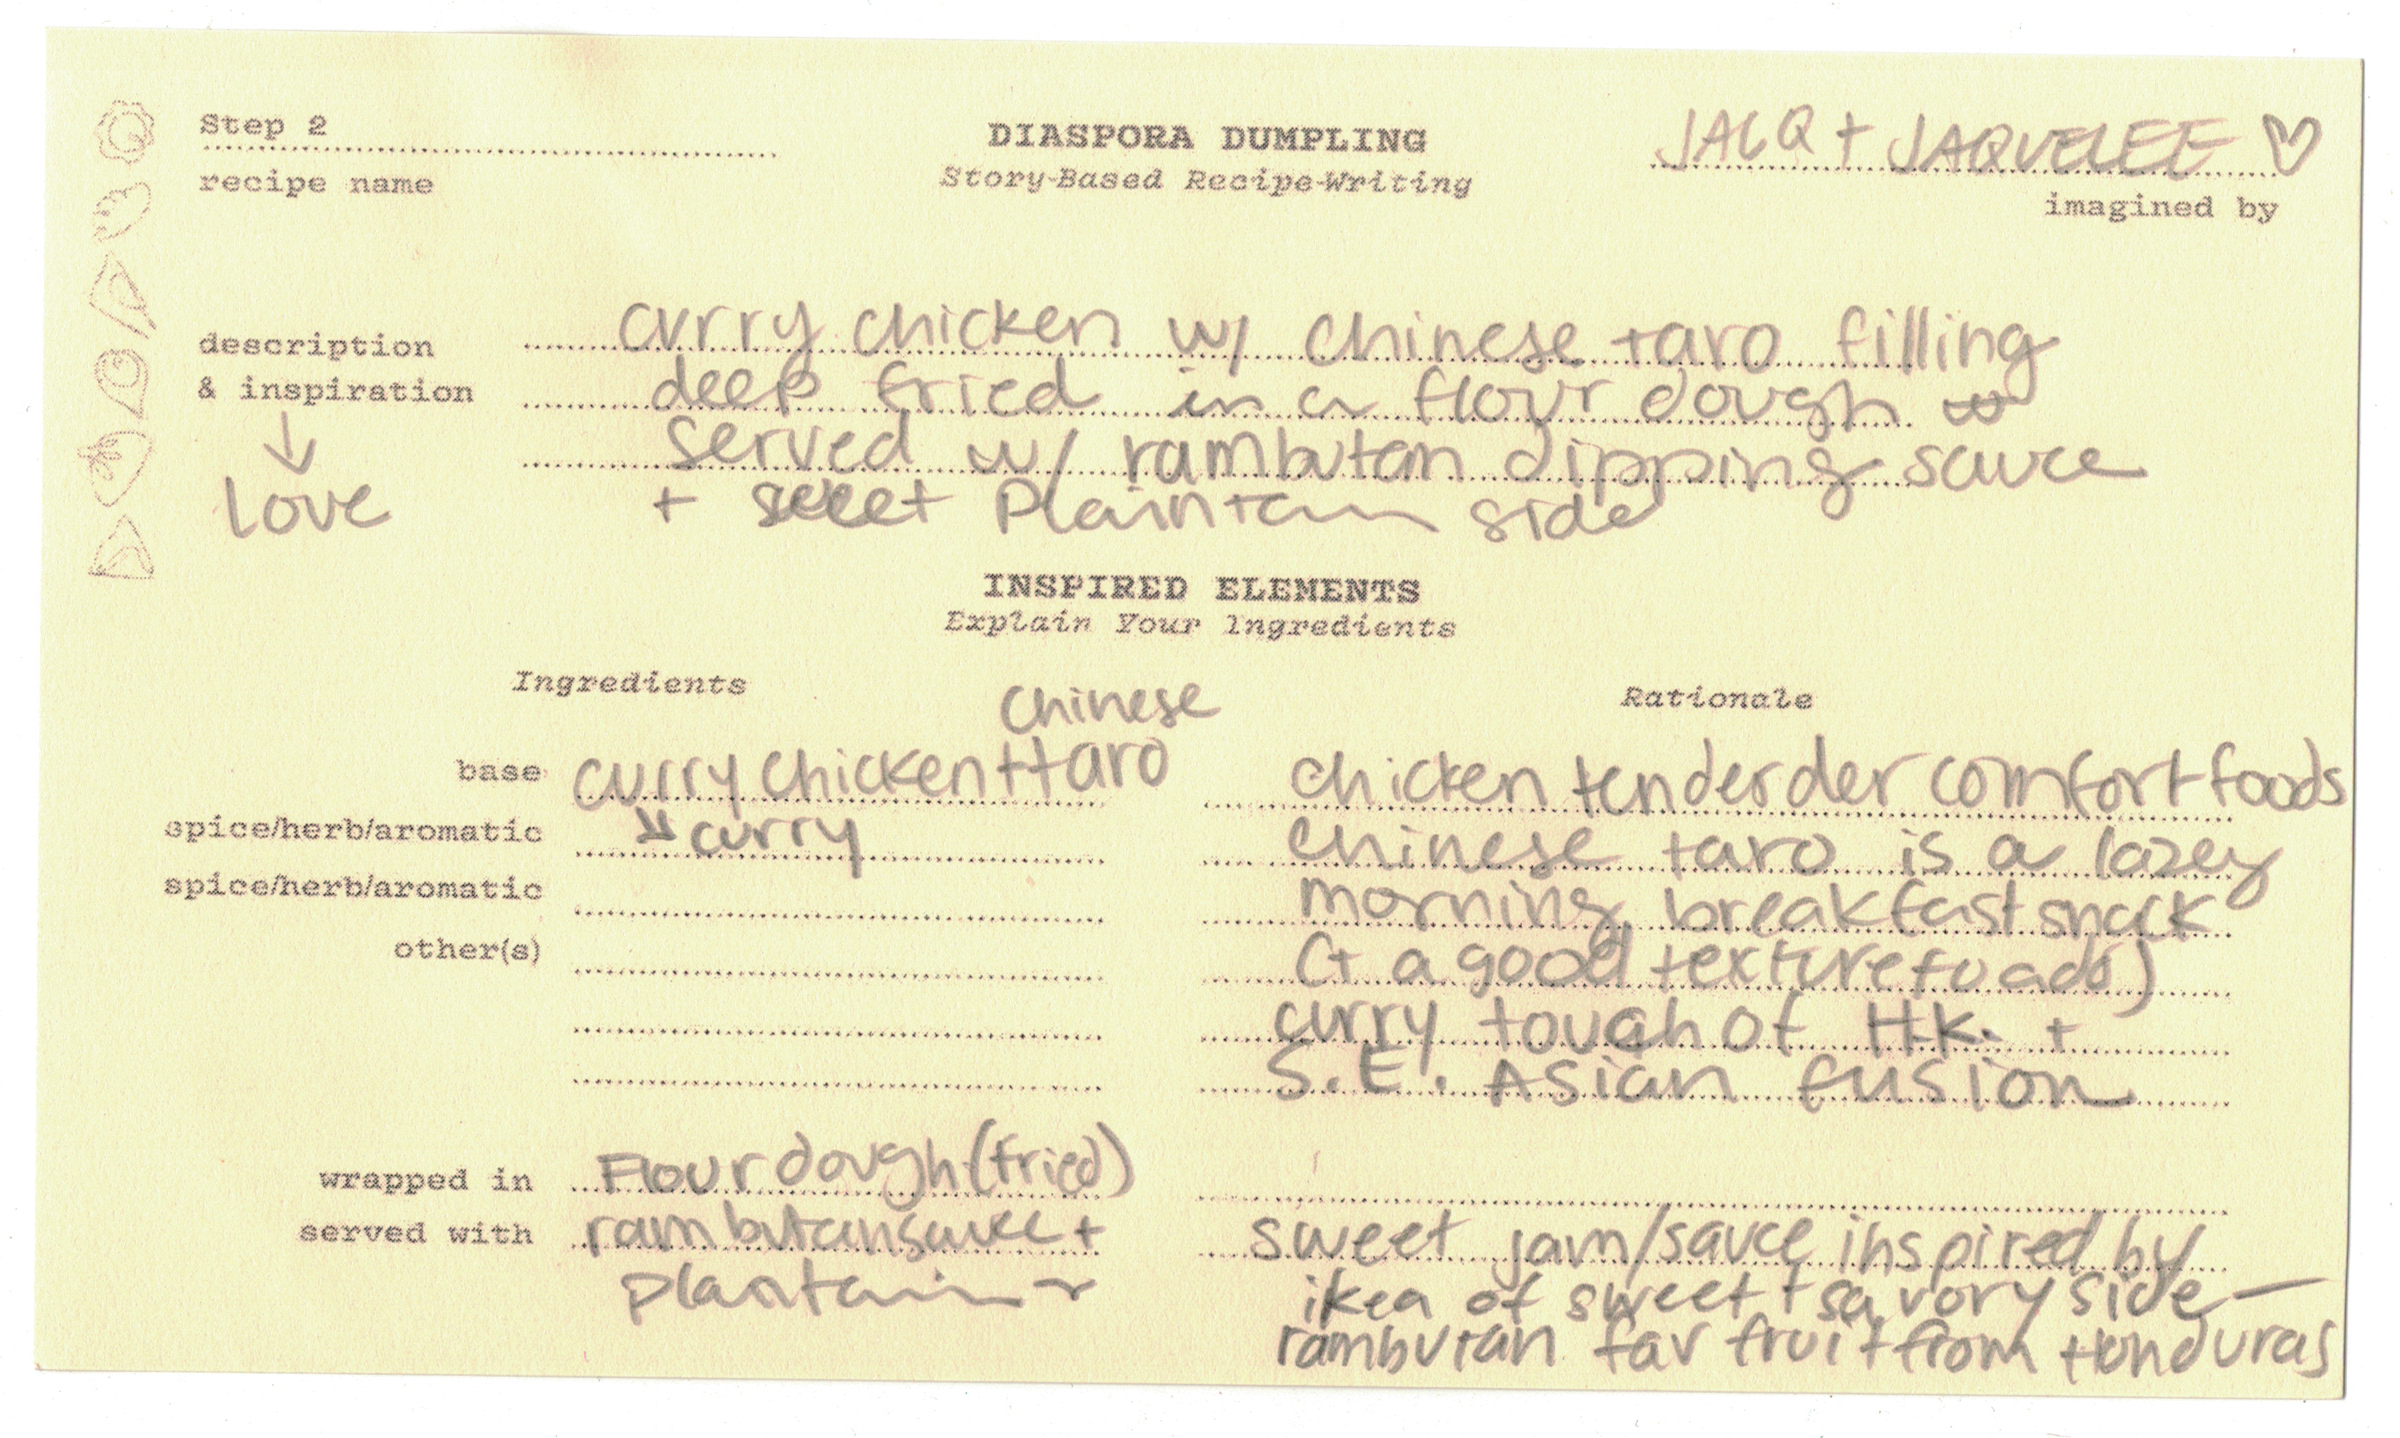 Step 2
recipe name
DIASPORA DUMPLING
Story-Based Recipe-Writing
JACQ + JAQUELEE ♡
imagined by
description
& inspiration
↓
love
curry chicken w/ chinese taro filling
deep fried in a flour dough
served w/ rambutan dipping sauce
+ sweet Plaintain side
INSPIRED ELEMENTS
Explain Your Ingredients
Ingredients
Rationale
base
curry chicken + taro
Chinese
chicken tenderder comfort foods
spice/herb/aromatic
↘ curry
chinese taro is a lazey
spice/herb/aromatic
morning breakfast snack
other(s)
(+ a good texture to add)
curry tough of H.K. +
S.E. Asian fusion
wrapped in
Flour dough (fried)
served with
rambutan sauce +
plantain
sweet jam/sauce inspired by
ikea of sweet + savory side —
rambutan fav fruit from Honduras